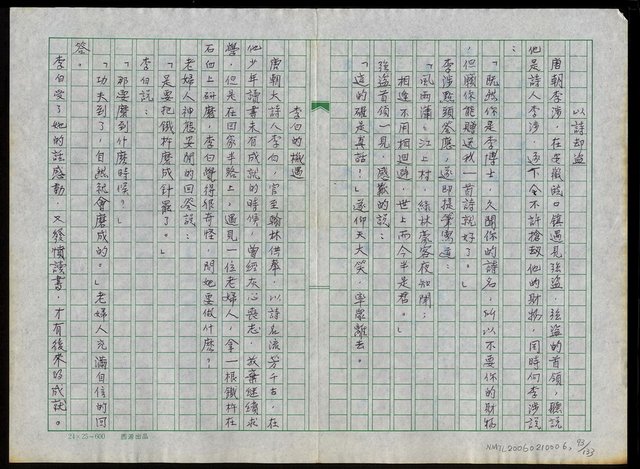 以詩却盜
唐朝李涉，在安徽皖口鎮遇見強盜，強盜的首領，聽説
他是詩人李涉，遂下令不許搶刼他的財物，同時向李涉説
：
「既然你是李博士，久聞你的詩名，所以不要你的財物
，但願你能贈送我一首詩就好了。」
李涉點頭答應，遂即提筆寫道：
「風雨瀟瀟江上村，綠林豪客夜知聞；
相逢不用相迴避，世上而今半是君。」
強盜首領一見，感歎的説：
「這的確是真話！」遂仰天大笑，率眾離去。
李白的機遇
唐朝大詩人李白，官至翰林供奉，以詩在流芳千古，在
他少年讀書未有成就的時候，曾經灰心喪志，放棄繼續求
學，但是在回家半路上，遇見一位老婦人，拿一根鐵杵在
石臼上研磨，李白覺得很奇怪，問她要做什麽？
老婦人神態安閒的回答説：
「是要把鐵杵磨成針罷了。」
李白説：
「那要磨到什麽時候？」
「功夫到了，自然就會磨成的。」老婦人充滿自信的回
答。
李白受了她的話感動，又發憤讀書，才有後來的成就。
24×25=600
西湖出品
NMTL20050210006
93/133